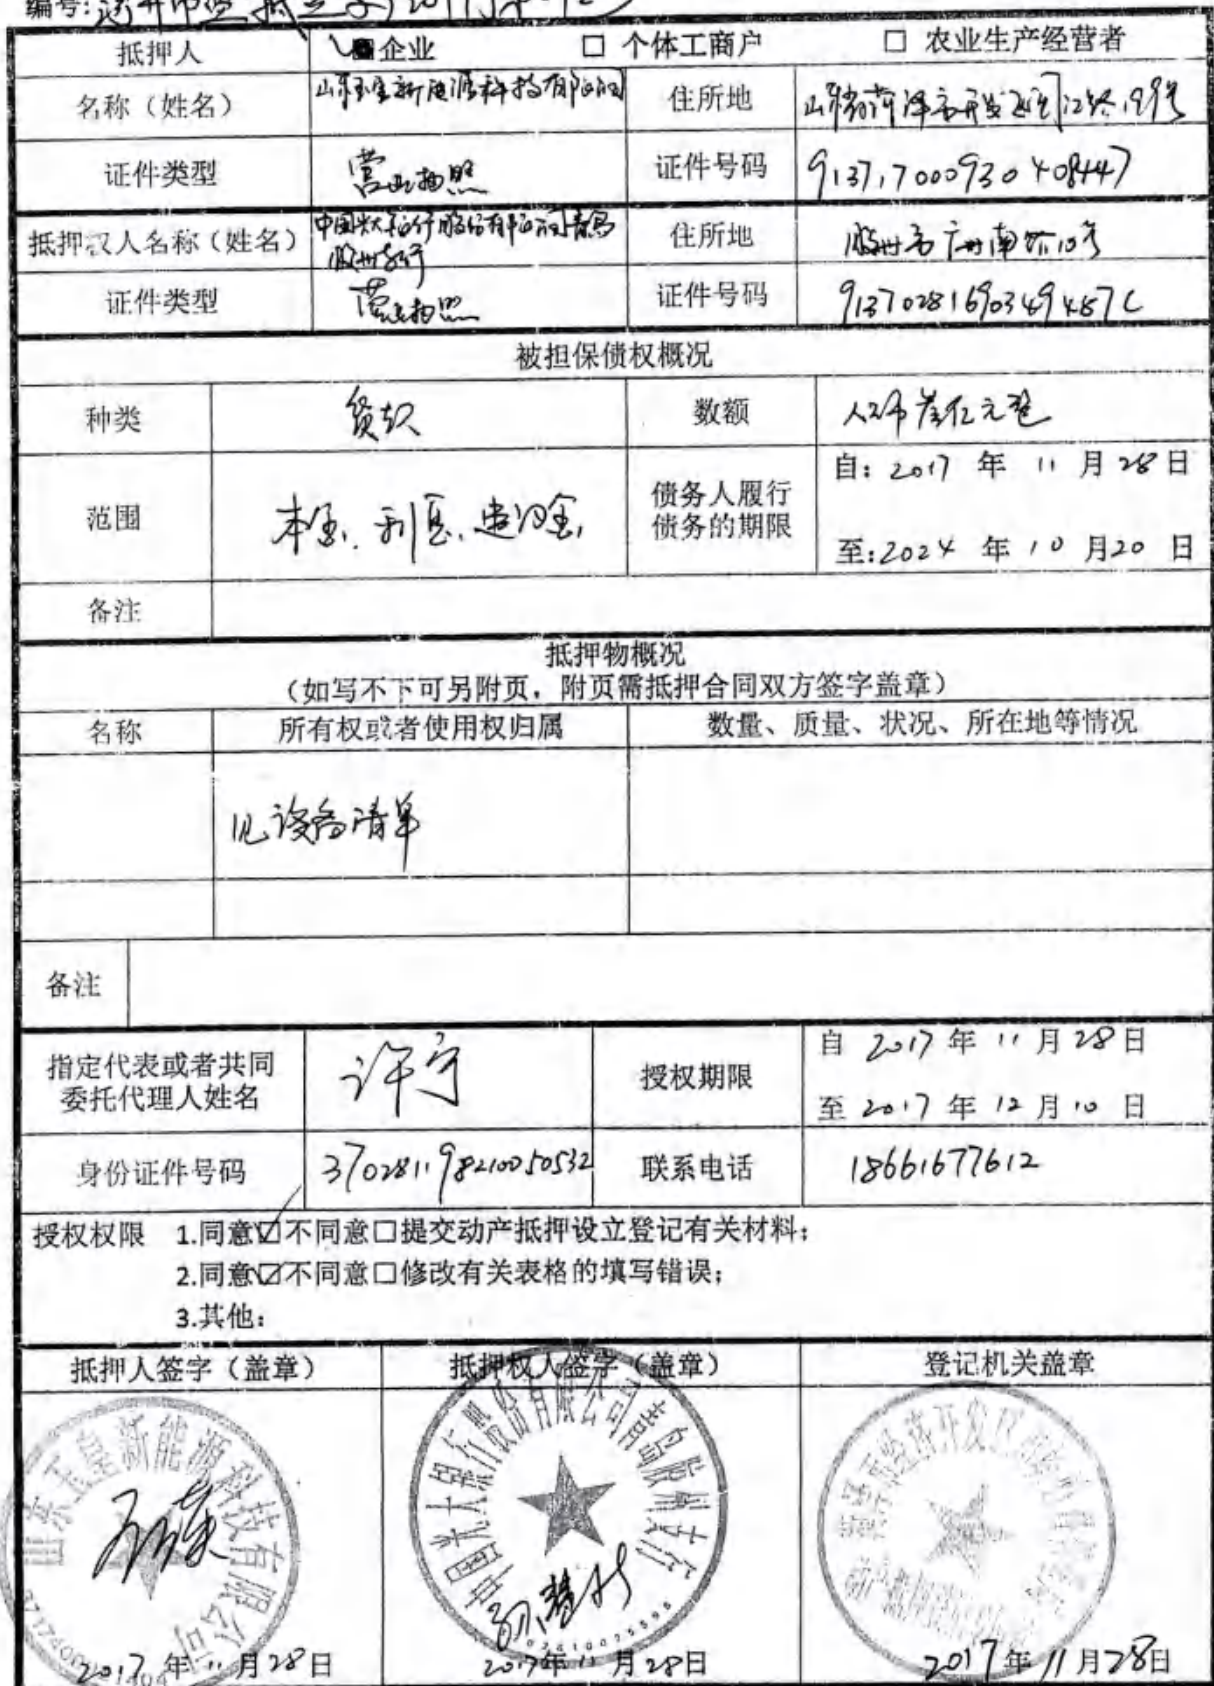 编号:
抵押人 企业 □ 个体工商户 □ 农业生产经营者
名称（姓名） 山东玉皇新能源科技有限公司 住所地 山东省菏泽市开发区
证件类型 营业执照 证件号码
抵押权人名称（姓名） 中国光大银行股份有限公司青岛 住所地 胶州市广州南路10号
胶州支行
证件类型 营业执照 证件号码
被担保债权概况
种类 贷款 数额 人民币壹亿元整
范围 本金、利息、违约金、 债务人履行债务的期限 自: 2017 年 11 月 28 日
至: 2024 年 10 月 20 日
备注
抵押物概况
（如写不下可另附页，附页需抵押合同双方签字盖章）
名称 所有权或者使用权归属 数量、质量、状况、所在地等情况
见设备清单
备注
指定代表或者共同委托代理人姓名 许宁 授权期限 自 2017 年 11 月 28 日
至 2017 年 12 月 10 日
身份证件号码 370281198210050532 联系电话 18661677612
授权权限 1.同意☑不同意□提交动产抵押设立登记有关材料；
2.同意☑不同意□修改有关表格的填写错误；
3.其他：
抵押人签字（盖章） 抵押权人签字（盖章） 登记机关盖章
山东玉皇新能源科技有限公司
中国光大银行股份有限公司青岛胶州支行
2017 年 11 月 28 日 2017 年 11 月 28 日 2017 年 11 月 28 日